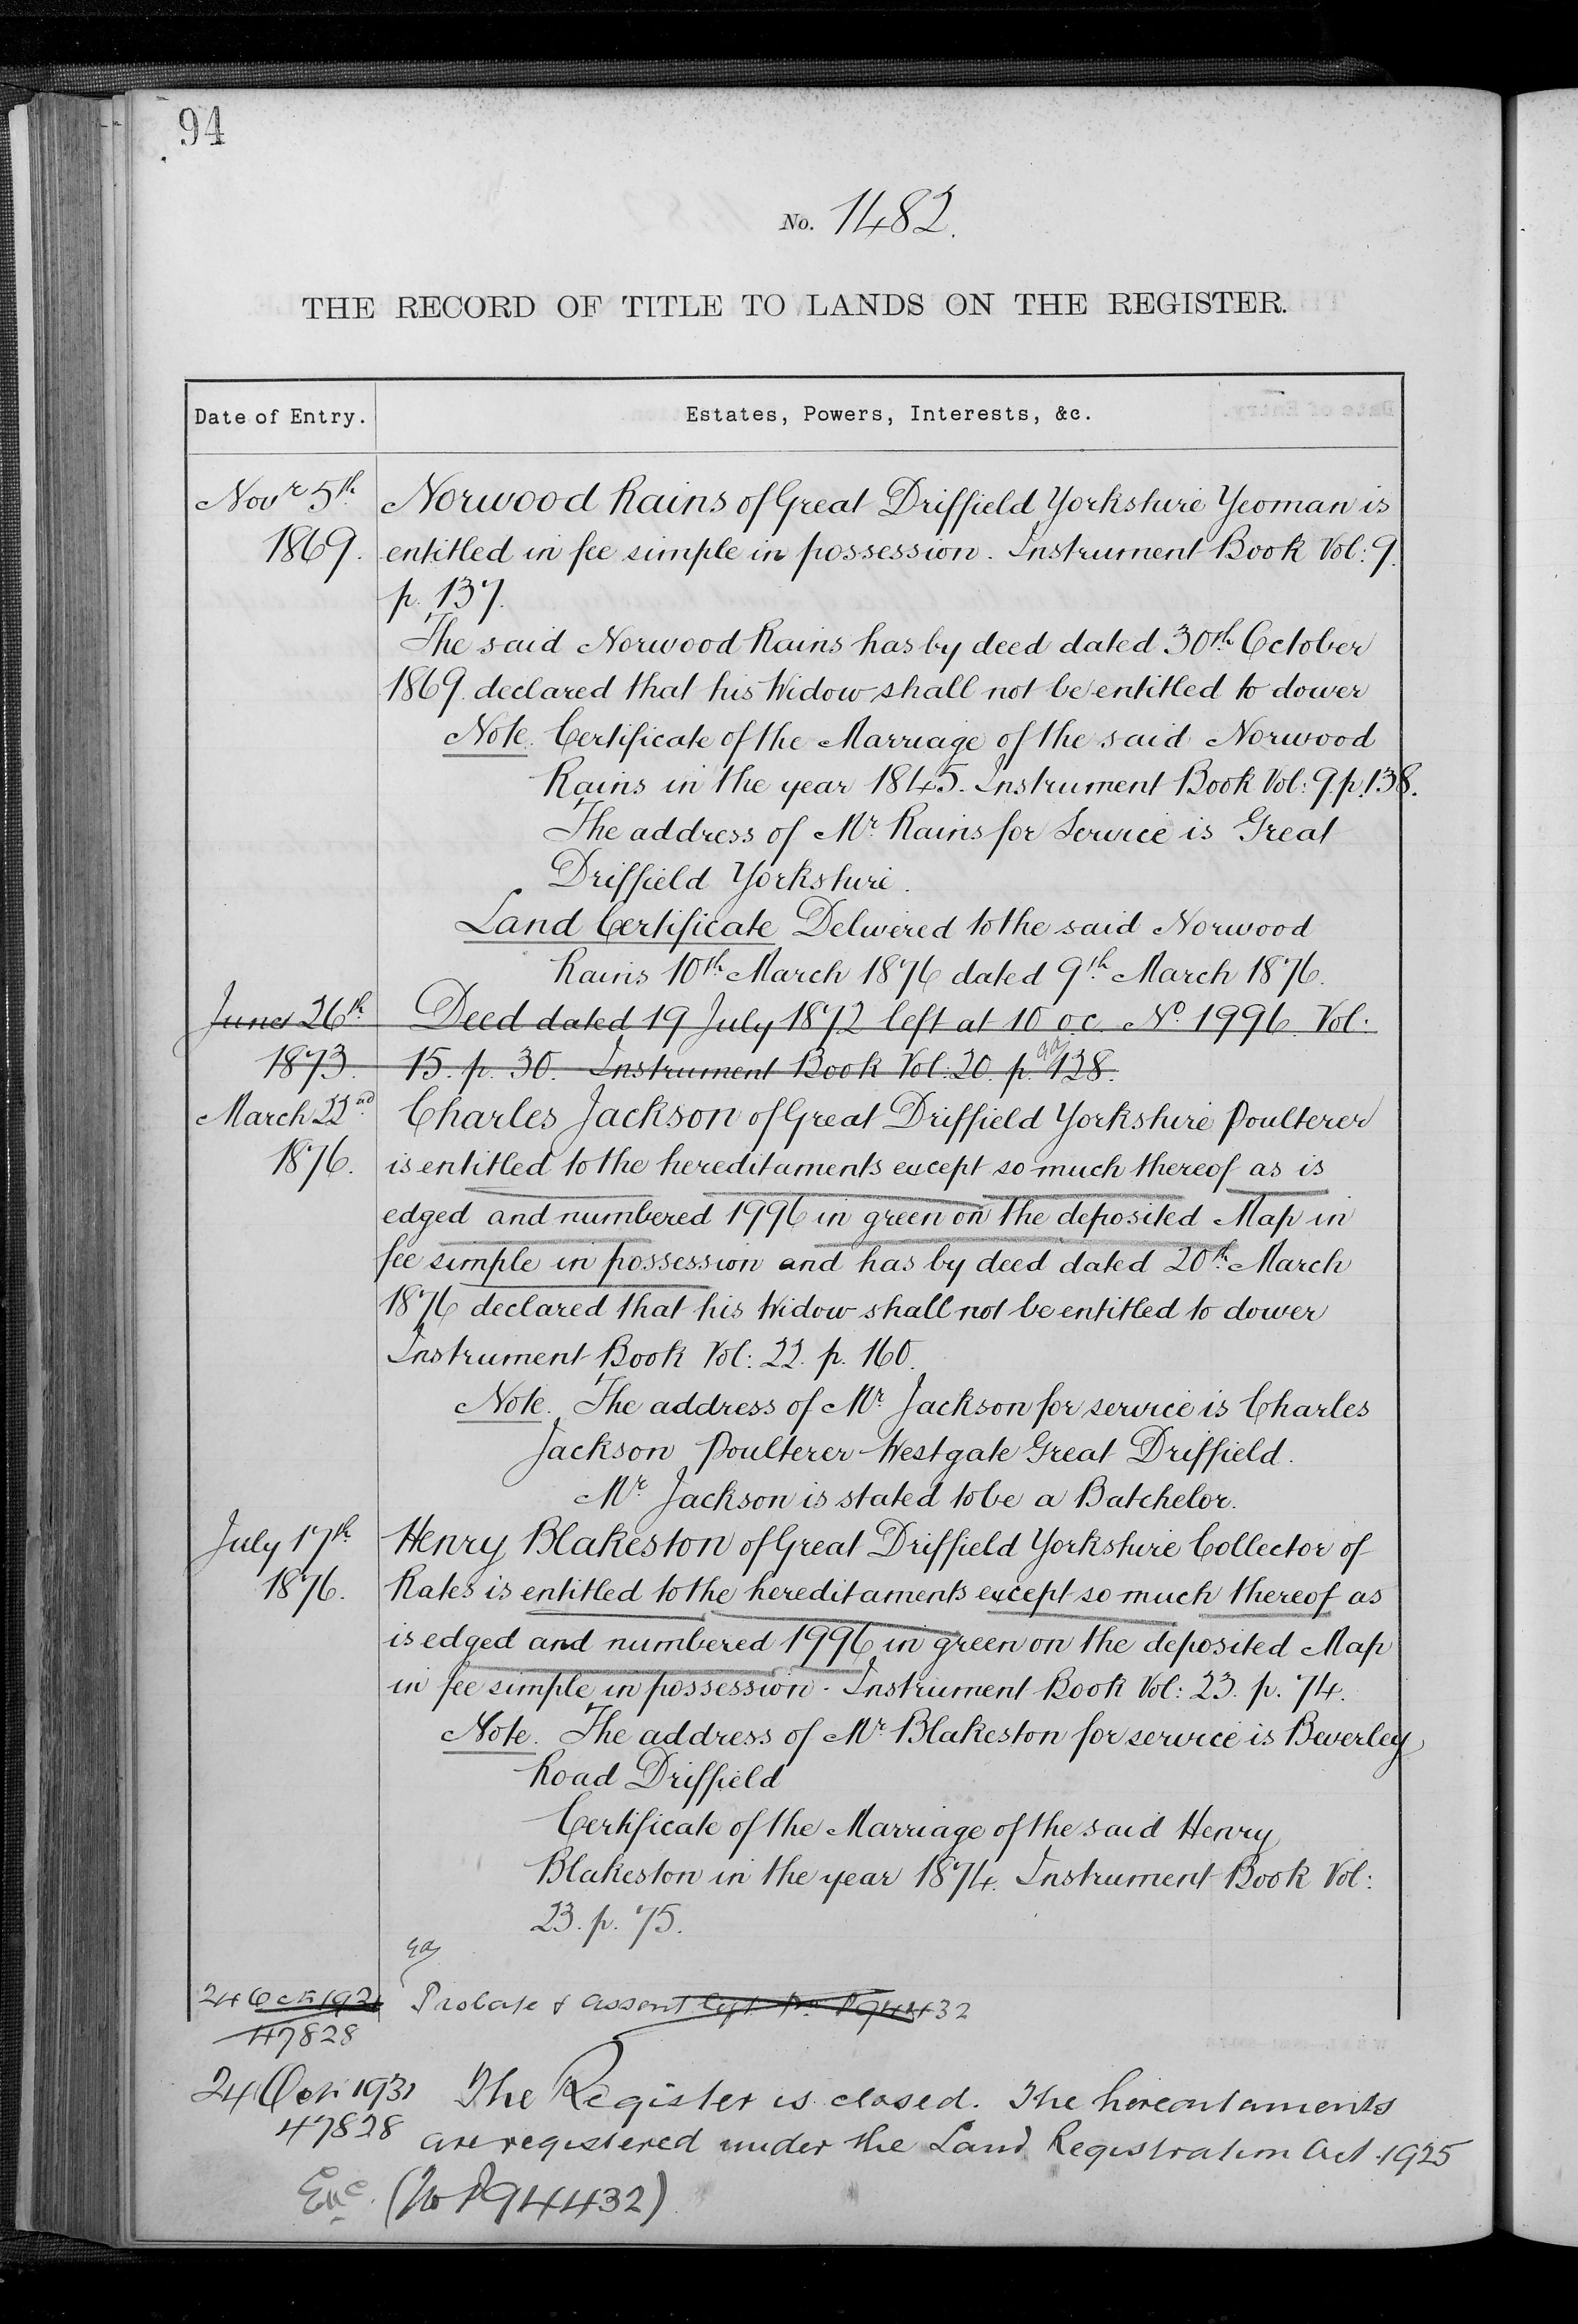 94
No. 1482.
THE RECORD OF TITLE TO LANDS ON THE REGISTER.
Date of Entry. Estates, Powers, Interests, &c.
Novr 5th Norwood Rains of Great Driffield Yorkshire Yeoman is
1869. entitled in fee simple in possession. Instrument Book Vol: 9.
p. 137.
The said Norwood Rains has by deed dated 30th October
1869. declared that his Widow shall not be entitled to dower
Note. Certificate of the Marriage of the said Norwood
Rains in the year 1845. Instrument Book Vol: 9. p. 138.
The address of Mr Rains for Service is Great
Driffield Yorkshire.
Land Certificate Delivered to the said Norwood
Rains 10th March 1876 dated 9th March 1876.
June 26th Deed dated 19 July 1872 left at 10 o.c. No 1996. Vol:
1873. 15. p. 30. Instrument Book Vol. 20. p. 128.
March 22nd Charles Jackson of Great Driffield Yorkshire Poulterer
1876. is entitled to the hereditaments except so much thereof as is
edged and numbered 1996 in green on the deposited Map in
fee simple in possession and has by deed dated 20th March
1876 declared that his Widow shall not be entitled to dower
Instrument Book Vol: 22. p. 160.
Note. The address of Mr Jackson for service is Charles
Jackson Poulterer Westgate Great Driffield.
Mr Jackson is stated to be a Batchelor.
July 17th Henry Blakeston of Great Driffield Yorkshire Collector of
1876. Rates is entitled to the hereditaments except so much thereof as
is edged and numbered 1996 in green on the deposited Map
in fee simple in possession. Instrument Book Vol: 23. p. 74.
Note. The address of Mr Blakeston for service is Beverley
Road Driffield
Certificate of the Marriage of the said Henry
Blakeston in the year 1874. Instrument Book Vol:
23. p. 75.
24 Oct 1931 Probate & Assent P94432
47828
24 Oct 1931 The Register is closed. The hereditaments
47828 are registered under the Land Registration Act 1925
(No P94432)